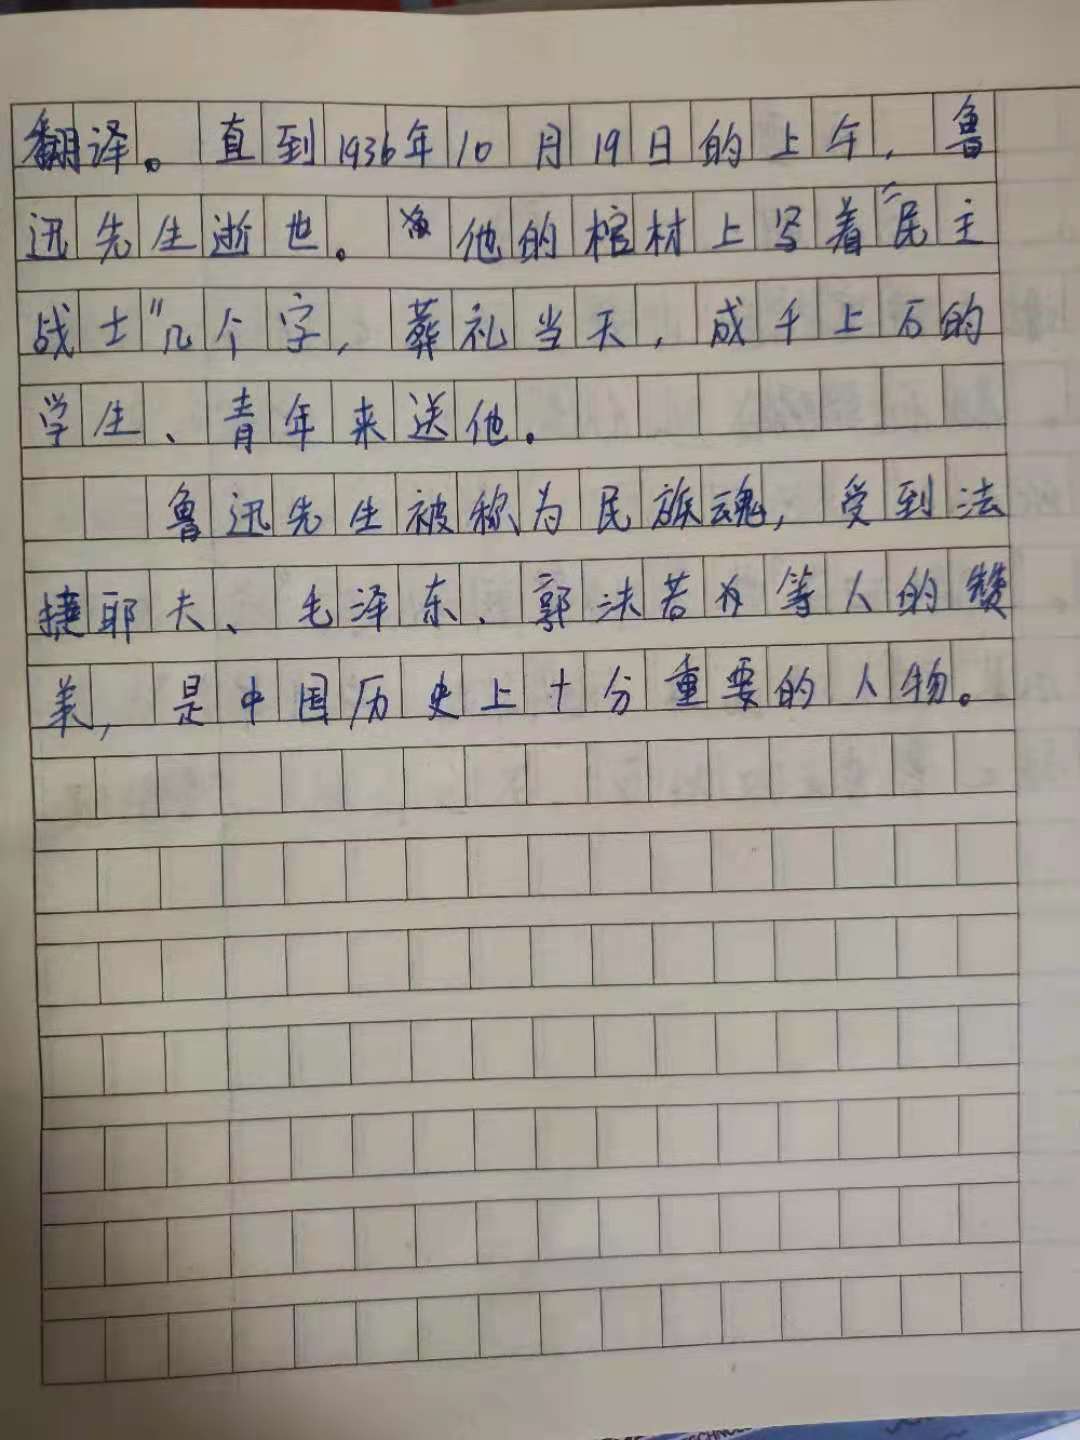 翻译。直到1936年10月19日的上午,鲁
迅先生逝世。他的棺材上写着“民主
战士”几个字,葬礼当天,成千上万的
学生、青年来送他。
鲁迅先生被称为民族魂,受到法
捷耶夫、毛泽东、郭沫若等人的赞
美,是中国历史上十分重要的人物。